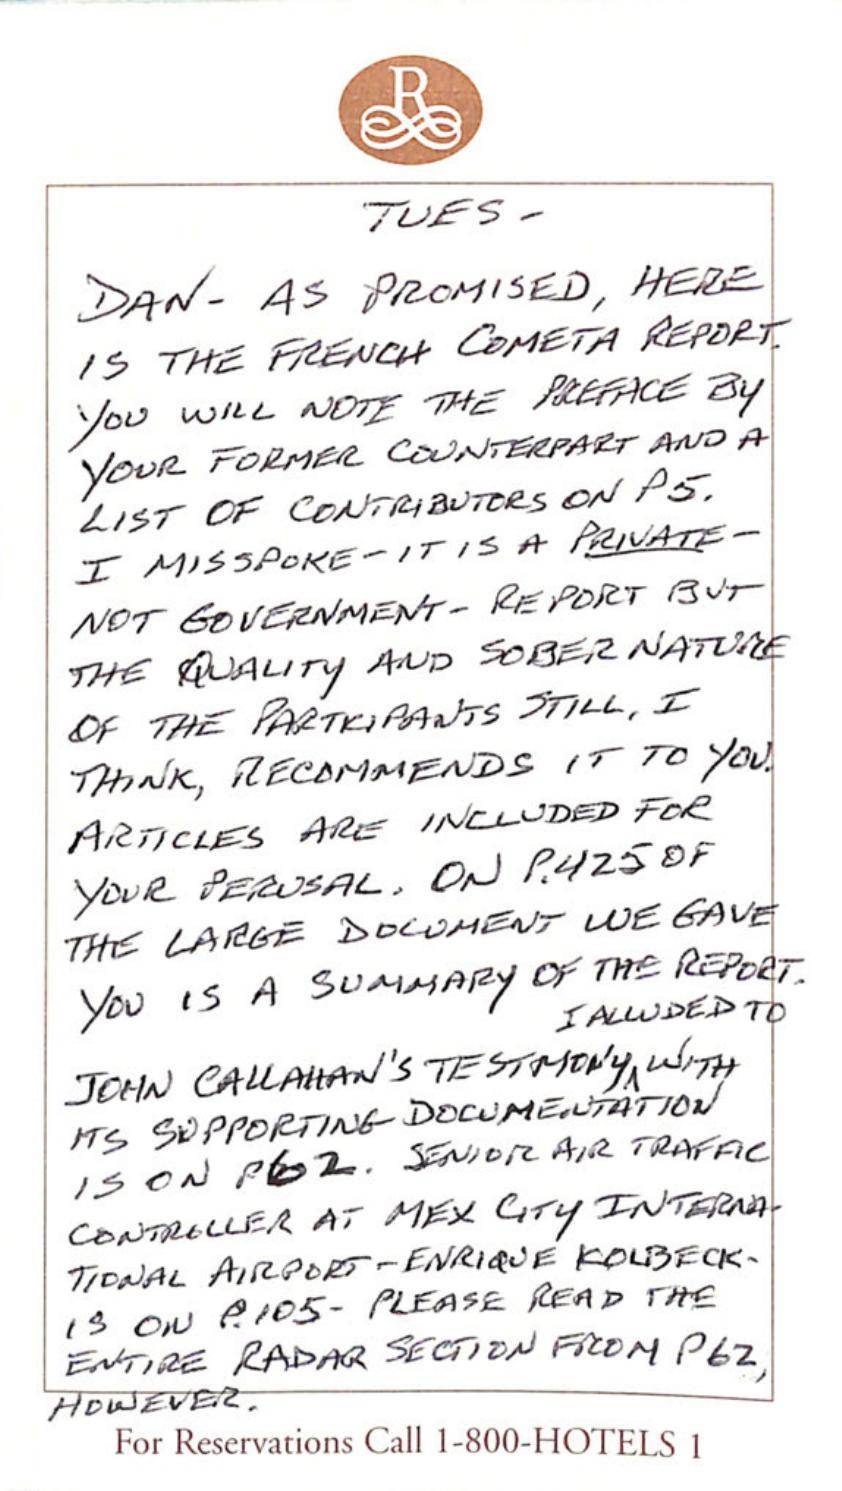 R
TUES -
DAN - AS PROMISED, HERE
IS THE FRENCH COMETA REPORT.
YOU WILL NOTE THE PREFACE BY
YOUR FORMER COUNTERPART AND A
LIST OF CONTRIBUTORS ON P5.
I MISSPOKE - IT IS A PRIVATE -
NOT GOVERNMENT - REPORT BUT
THE QUALITY AND SOBER NATURE
OF THE PARTICIPANTS STILL, I
THINK, RECOMMENDS IT TO YOU.
ARTICLES ARE INCLUDED FOR
YOUR PERUSAL. ON P.425 OF
THE LARGE DOCUMENT WE GAVE
YOU IS A SUMMARY OF THE REPORT.
I ALLUDED TO
JOHN CALLAHAN'S TESTIMONY ^ WITH
ITS SUPPORTING DOCUMENTATION
IS ON P62. SENIOR AIR TRAFFIC
CONTROLLER AT MEX CITY INTERNA-
TIONAL AIRPORT - ENRIQUE KOLBECK -
IS ON P.105 - PLEASE READ THE
ENTIRE RADAR SECTION FROM P62,
HOWEVER.
For Reservations Call 1-800-HOTELS 1